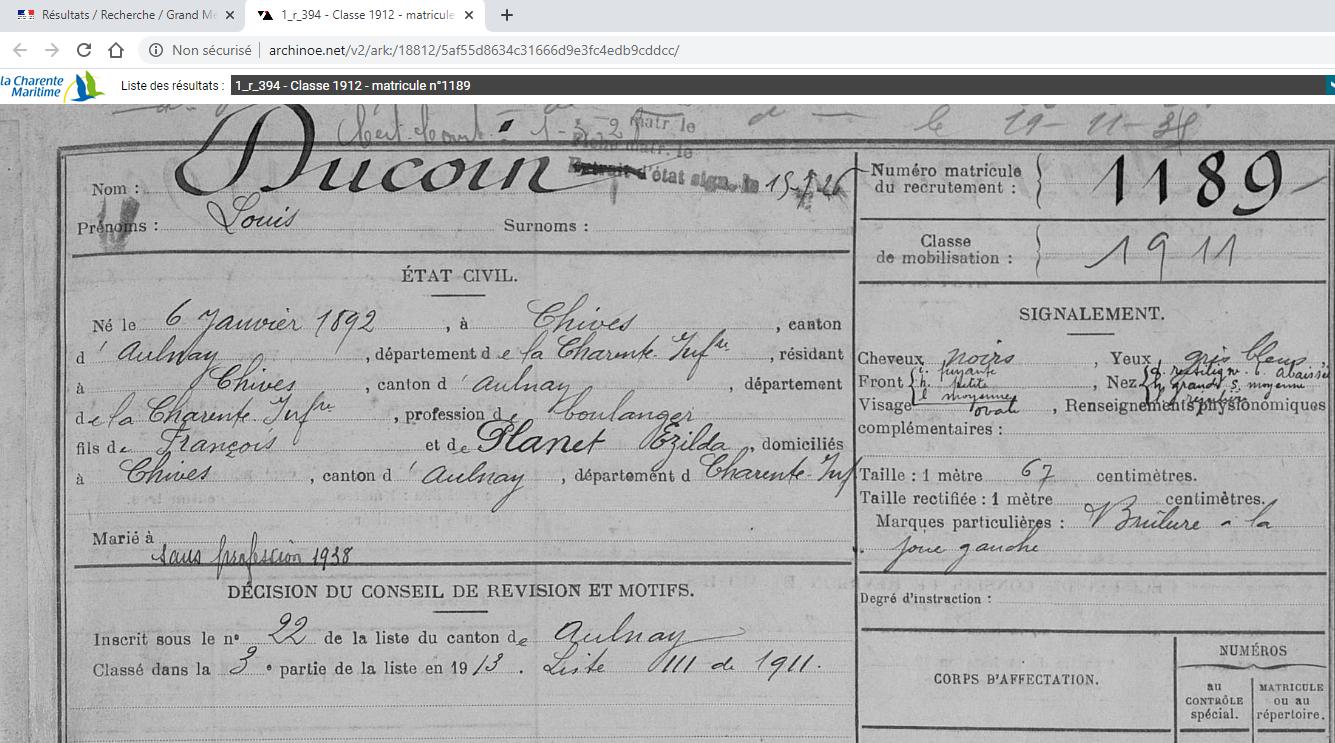 Résultats / Recherche / Grand Mé
1_r_394 - Classe 1912 - matricule
Non sécurisé | archinoe.net/v2/ark:/18812/5af55d8634c31666d9e3fc4edb9cddcc/
la Charente
Maritime
Liste des résultats : 1_r_394 - Classe 1912 - matricule n°1189
matr. le
le 19-11-38
Fiche matr. le
Extrait d'état sign. le
Nom : Ducoin
Prénoms : Louis Surnoms :
Numéro matricule
du recrutement : 1189
Classe
de mobilisation : 1911
ÉTAT CIVIL.
Né le 6 Janvier 1892, à Chives, canton
d'Aulnay, département de la Charente Infre, résidant
à Chives, canton d'Aulnay, département
de la Charente Infre, profession de Boulanger
fils de François et de Planet Ezilda, domiciliés
à Chives, canton d'Aulnay, département d Charente-Inf
Marié à
sans profession 1938
SIGNALEMENT.
Cheveux noirs, Yeux gris bleus,
Front i. fuyante h. petite l. moyenne, Nez abaissée grand s. moyenne
Visage ovale, Renseignements physionomiques
complémentaires :
Taille : 1 mètre 67 centimètres.
Taille rectifiée : 1 mètre centimètres.
Marques particulières : Brûlure à la
joue gauche
Degré d'instruction :
DÉCISION DU CONSEIL DE REVISION ET MOTIFS.
Inscrit sous le n° 22 de la liste du canton de Aulnay
Classé dans la 3e partie de la liste en 1913. Liste III de 1911.
CORPS D'AFFECTATION.
NUMÉROS
au
CONTRÔLE
spécial.
MATRICULE
ou au
répertoire.